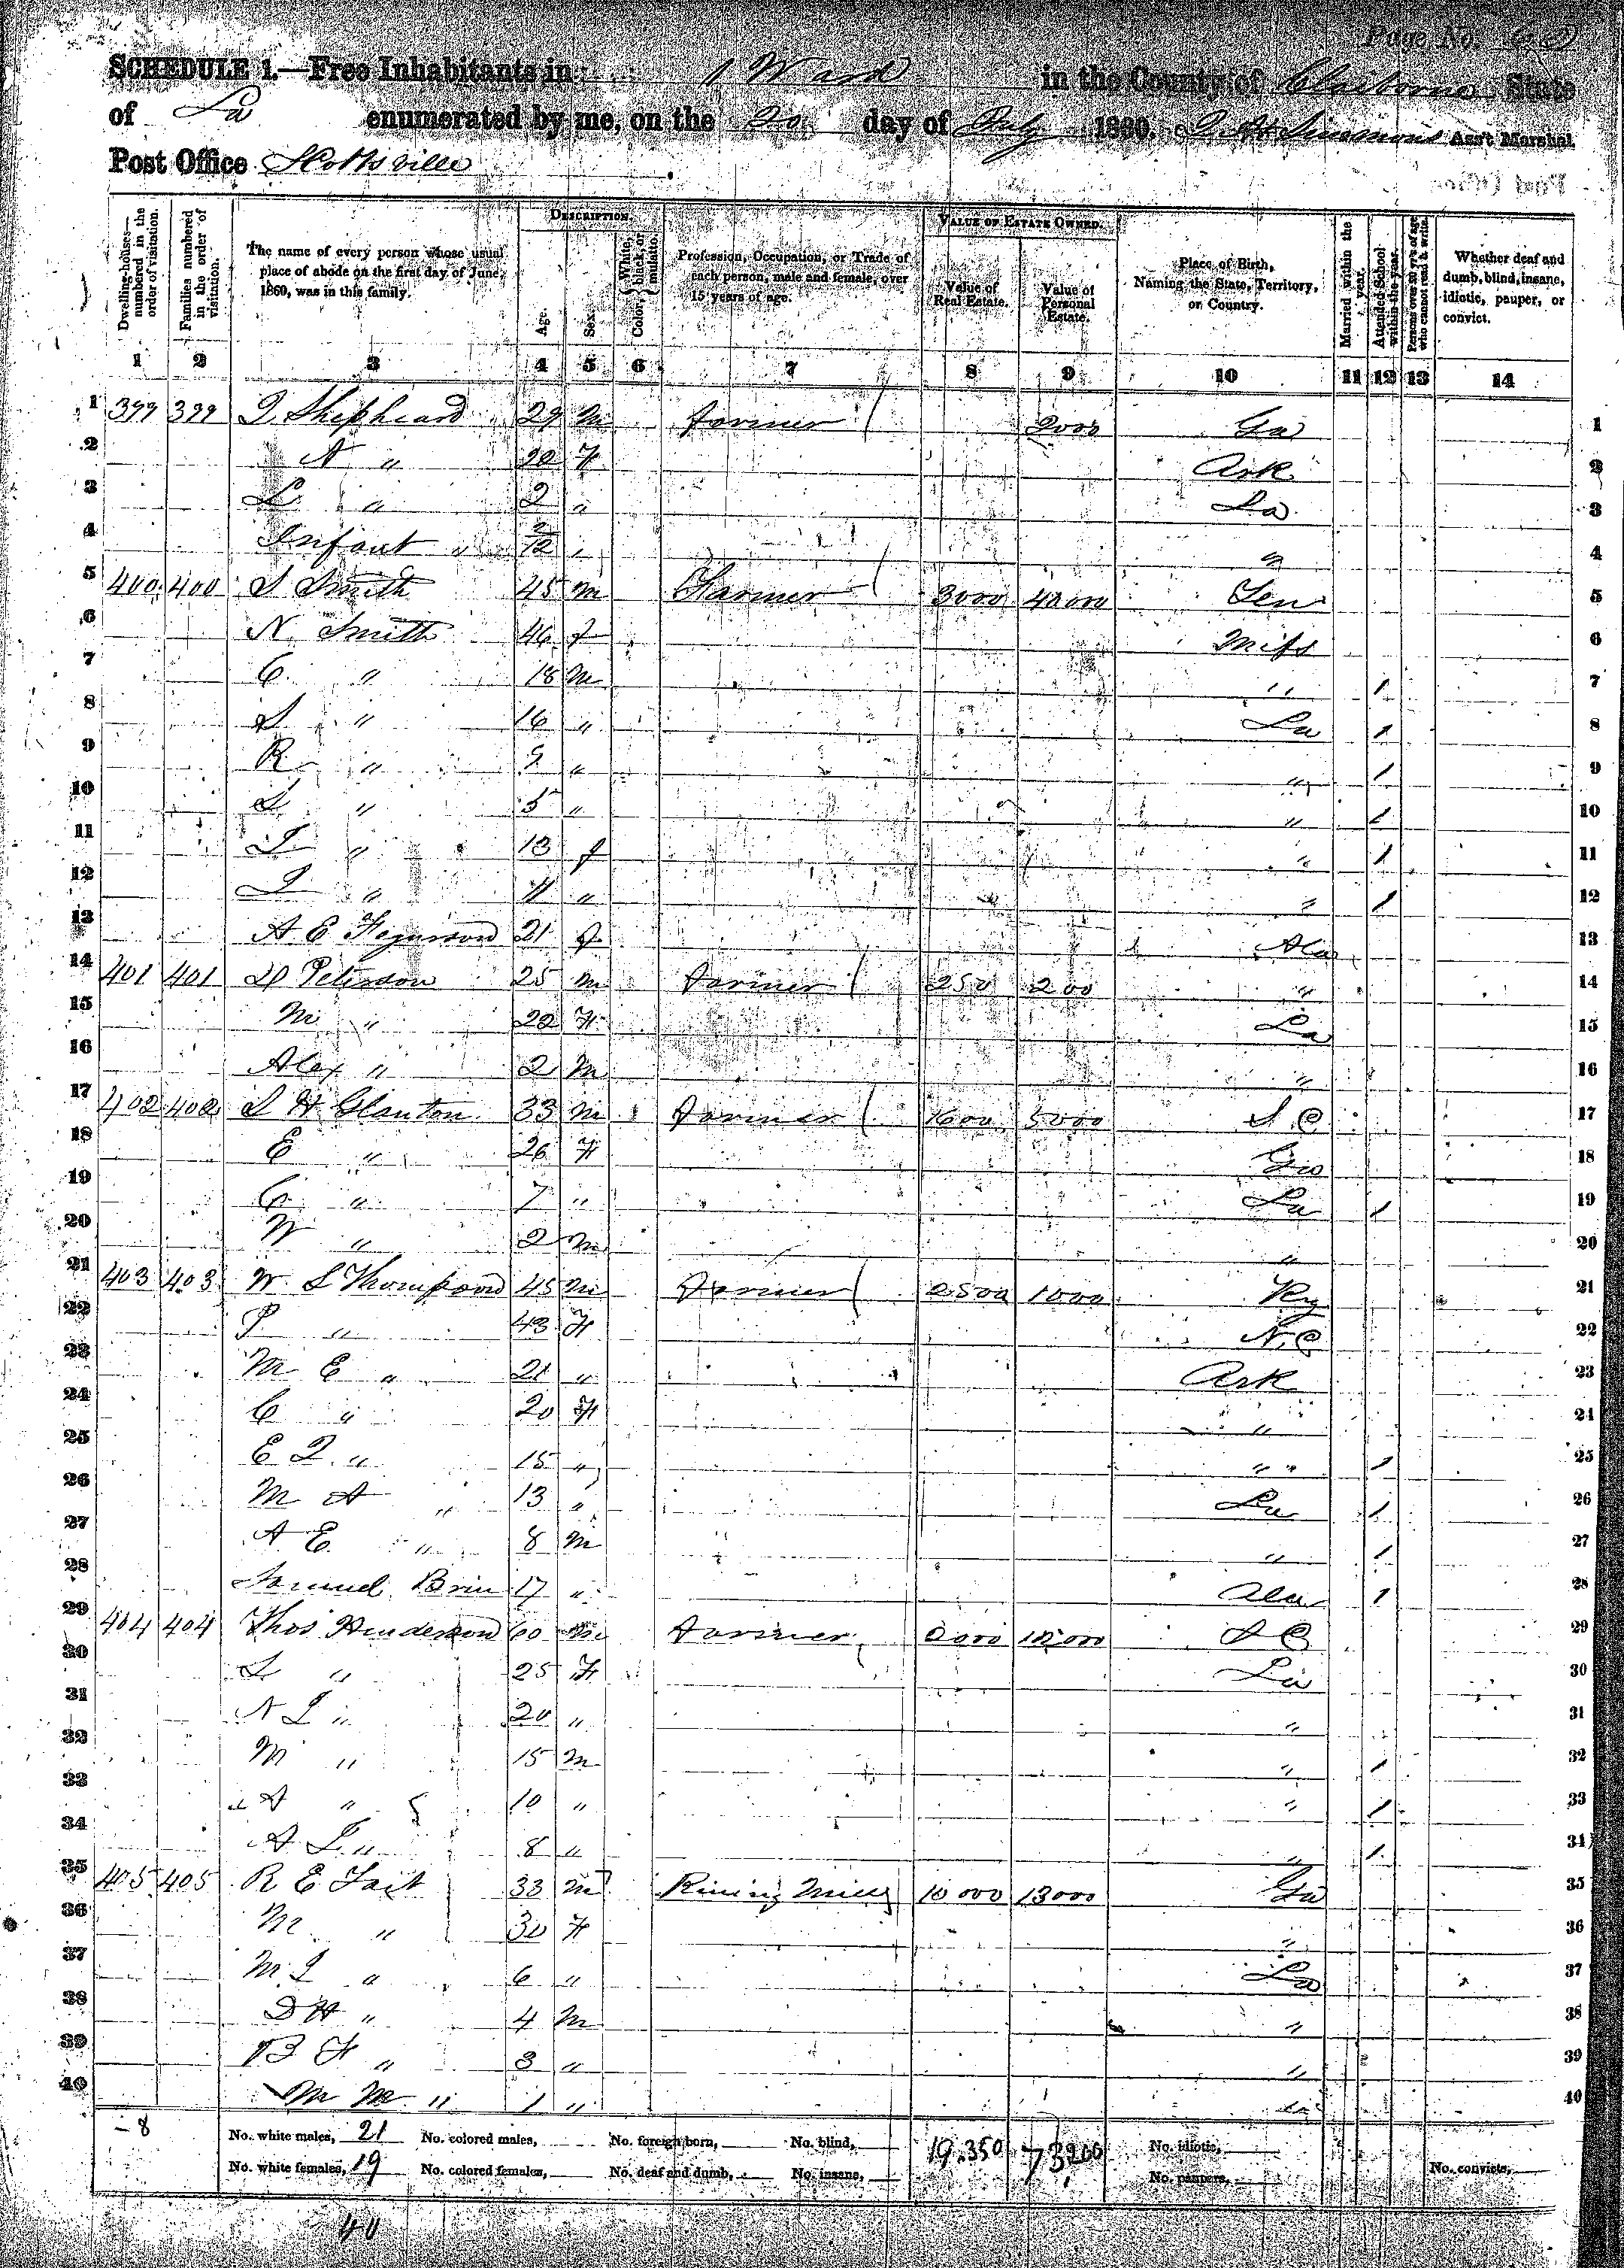 Page No. 
SCHEDULE 1.—Free Inhabitants in 11 Ward in the County of Claiborne State
of La enumerated by me, on the 20 day of July 1860. Simmons Ass't Marshal.
Post Office Scottsville
Dwelling-houses—numbered in the order of visitation.
Families numbered in the order of visitation.
The name of every person whose usual place of abode on the first day of June, 1860, was in this family.
DESCRIPTION.
Age.
Sex.
Color, {White, black, or mulatto.
Profession, Occupation, or Trade of each person, male and female, over 15 years of age.
VALUE OF ESTATE OWNED.
Value of Real Estate.
Value of Personal Estate.
Place of Birth, Naming the State, Territory, or Country.
Married within the year.
Attended School within the year.
Persons over 20 y'rs of age who cannot read & write.
Whether deaf and dumb, blind, insane, idiotic, pauper, or convict.
1 2 3 4 5 6 7 8 9 10 11 12 13 14
1 399 399 J. Shepheard 29 m Farmer 2000 Ga 1
2 A " 20 F Ark 2
3 L " 2 " La 3
4 Infant " 2/12 " " 4
5 400 400 S Smith 45 m Farmer 3000 40000 Ten 5
6 N. Smith 46 f Miss 6
7 C. " 18 m " / 7
8 S " 16 " La / 8
9 R " 9 " " / 9
10 S " 5 " " / 10
11 J " 13 f " / 11
12 J " 11 " " / 12
13 A E Fegurson 21 f Ala 13
14 401 401 D Peterson 25 m Farmer 250 200 " 14
15 M " 22 F La 15
16 Alex " 2 M " 16
17 402 402 S H Glanton 33 m Farmer 1600 5000 S C 17
18 E " 26 F Geo 18
19 C " 7 " La / 19
20 W " 2 m " 20
21 403 403 W S Thompson 45 m Farmer 2500 1000 Ky 21
22 P " 43 F N.C 22
23 M E " 21 " Ark 23
24 C " 20 F " 24
25 E J. " 15 " " / 25
26 M A " 13 " La / 26
27 A E. " 8 m " / 27
28 Samuel Brin 17 " Ala / 28
29 404 404 Thos Henderson 60 m Farmer 2000 12,000 S C 29
30 S " 25 F La 30
31 N J " 20 " " 31
32 M " 15 m " / 32
33 A " 10 " " / 33
34 A J. " 8 " " / 34
35 405 405 R E Tait 33 m Mills 10000 13000 Ga 35
36 M " 30 F " 36
37 M. J " 6 " La 37
38 D H " 4 m " 38
39 B F " 3 " " 39
40 M M " 1 " " 40
8 No. white males, 21 No. colored males, No. foreign born, No. blind, 19.350 73200 No. idiotic,
No. white females, 19 No. colored females, No. deaf and dumb, No. insane, No. paupers, No. convicts,
40